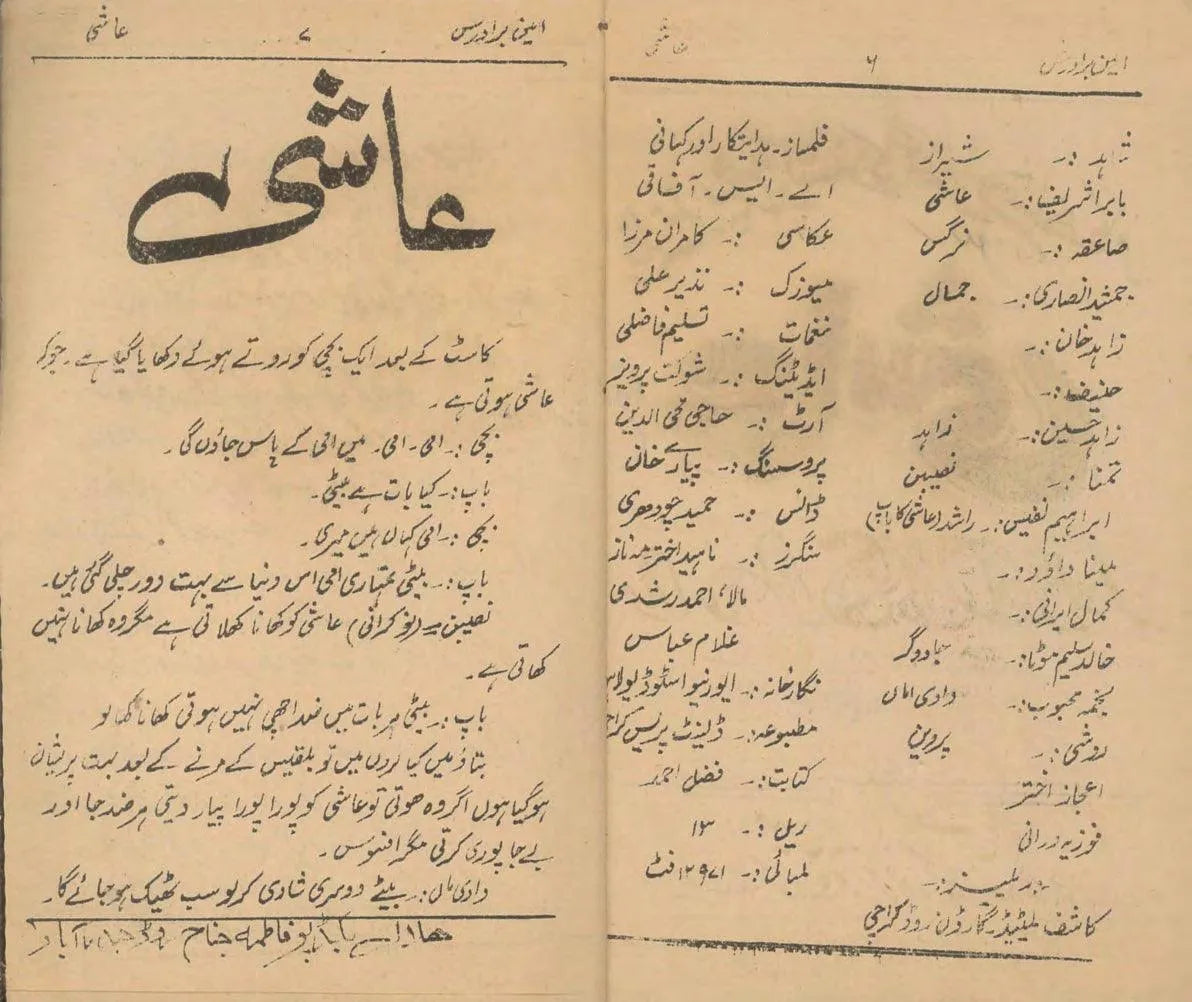 امین برادرس ۶ عاشی
شاہد :۔ شیراز
بابرا شریف :۔ عاشی
صاعقہ :۔ نرگس
جمشید انصاری :۔ جمال
زاہد خان :۔
حنیف :۔
زاہد حسین :۔ زاہد
تمنا :۔ نصیبن
ابراہیم نفیس :۔ راشد (عاشی کا باپ)
مینا داؤد :۔
کمال ایرانی :۔
خالد سلیم موٹا :۔ جادوگر
نجمہ محبوب :۔ دادی اماں
روشی :۔ پروین
اعجاز اختر
فوزیہ درانی
کاشف لمیٹیڈ گارڈن روڈ کراچی
فلمساز۔ ہدایتکار اور کہانی
اے ۔ ایس ۔ آفاقی
عکاسی :۔ کامران مرزا
میوزک :۔ نذیر علی
نغمات :۔ تسلیم فاضلی
ایڈیٹنگ :۔ شوکت پرویز
آرٹ :۔ حاجی محی الدین
پروسسنگ :۔ پیارے خان
ڈانس :۔ حمید چودھری
سنگرز :۔ ناہید اختر مہ ناز
مالا، احمد رشدی
غلام عباس
نگارخانہ :۔ ایورنیو اسٹوڈیو
مطبوعہ :۔ پریس
کتابت :۔ فضل احمد
ریل :۔ ۱۳
لمبائی :۔ ۱۲۹۷۱ فٹ
امین برادرس ۷ عاشی
عاشی
کاسٹ کے بعد ایک بچی کو روتے ہوئے دکھایا گیا ہے ۔ جو کہ
عاشی ہوتی ہے ۔
بچی :۔ امی ۔ امی ۔ میں امی کے پاس جاؤں گی ۔
باپ :۔ کیا بات ہے بیٹی ۔
بچی :۔ امی کہاں ہیں میری ۔
باپ :۔ بیٹی تمہاری امی اس دنیا سے بہت دور چلی گئی ہیں ۔
نصیبن :۔ (نوکرانی) عاشی کو کھانا کھلاتی ہے مگر وہ کھانا نہیں
کھاتی ہے ۔
باپ :۔ بیٹی ہر بات میں ضد اچھی نہیں ہوتی کھانا کھا لو
بتاؤ میں کیا کروں میں تو بلقیس کے مرنے کے بعد بہت پریشان
ہو گیا ہوں اگر وہ ہوتی تو عاشی کو پورا پورا پیار دیتی ہر ضد جا اور
بے جا پوری کرتی مگر افسوس ۔
دادی ماں :۔ بیٹے دوسری شادی کر لو سب ٹھیک ہو جائے گا ۔
فاطمہ جناح روڈ